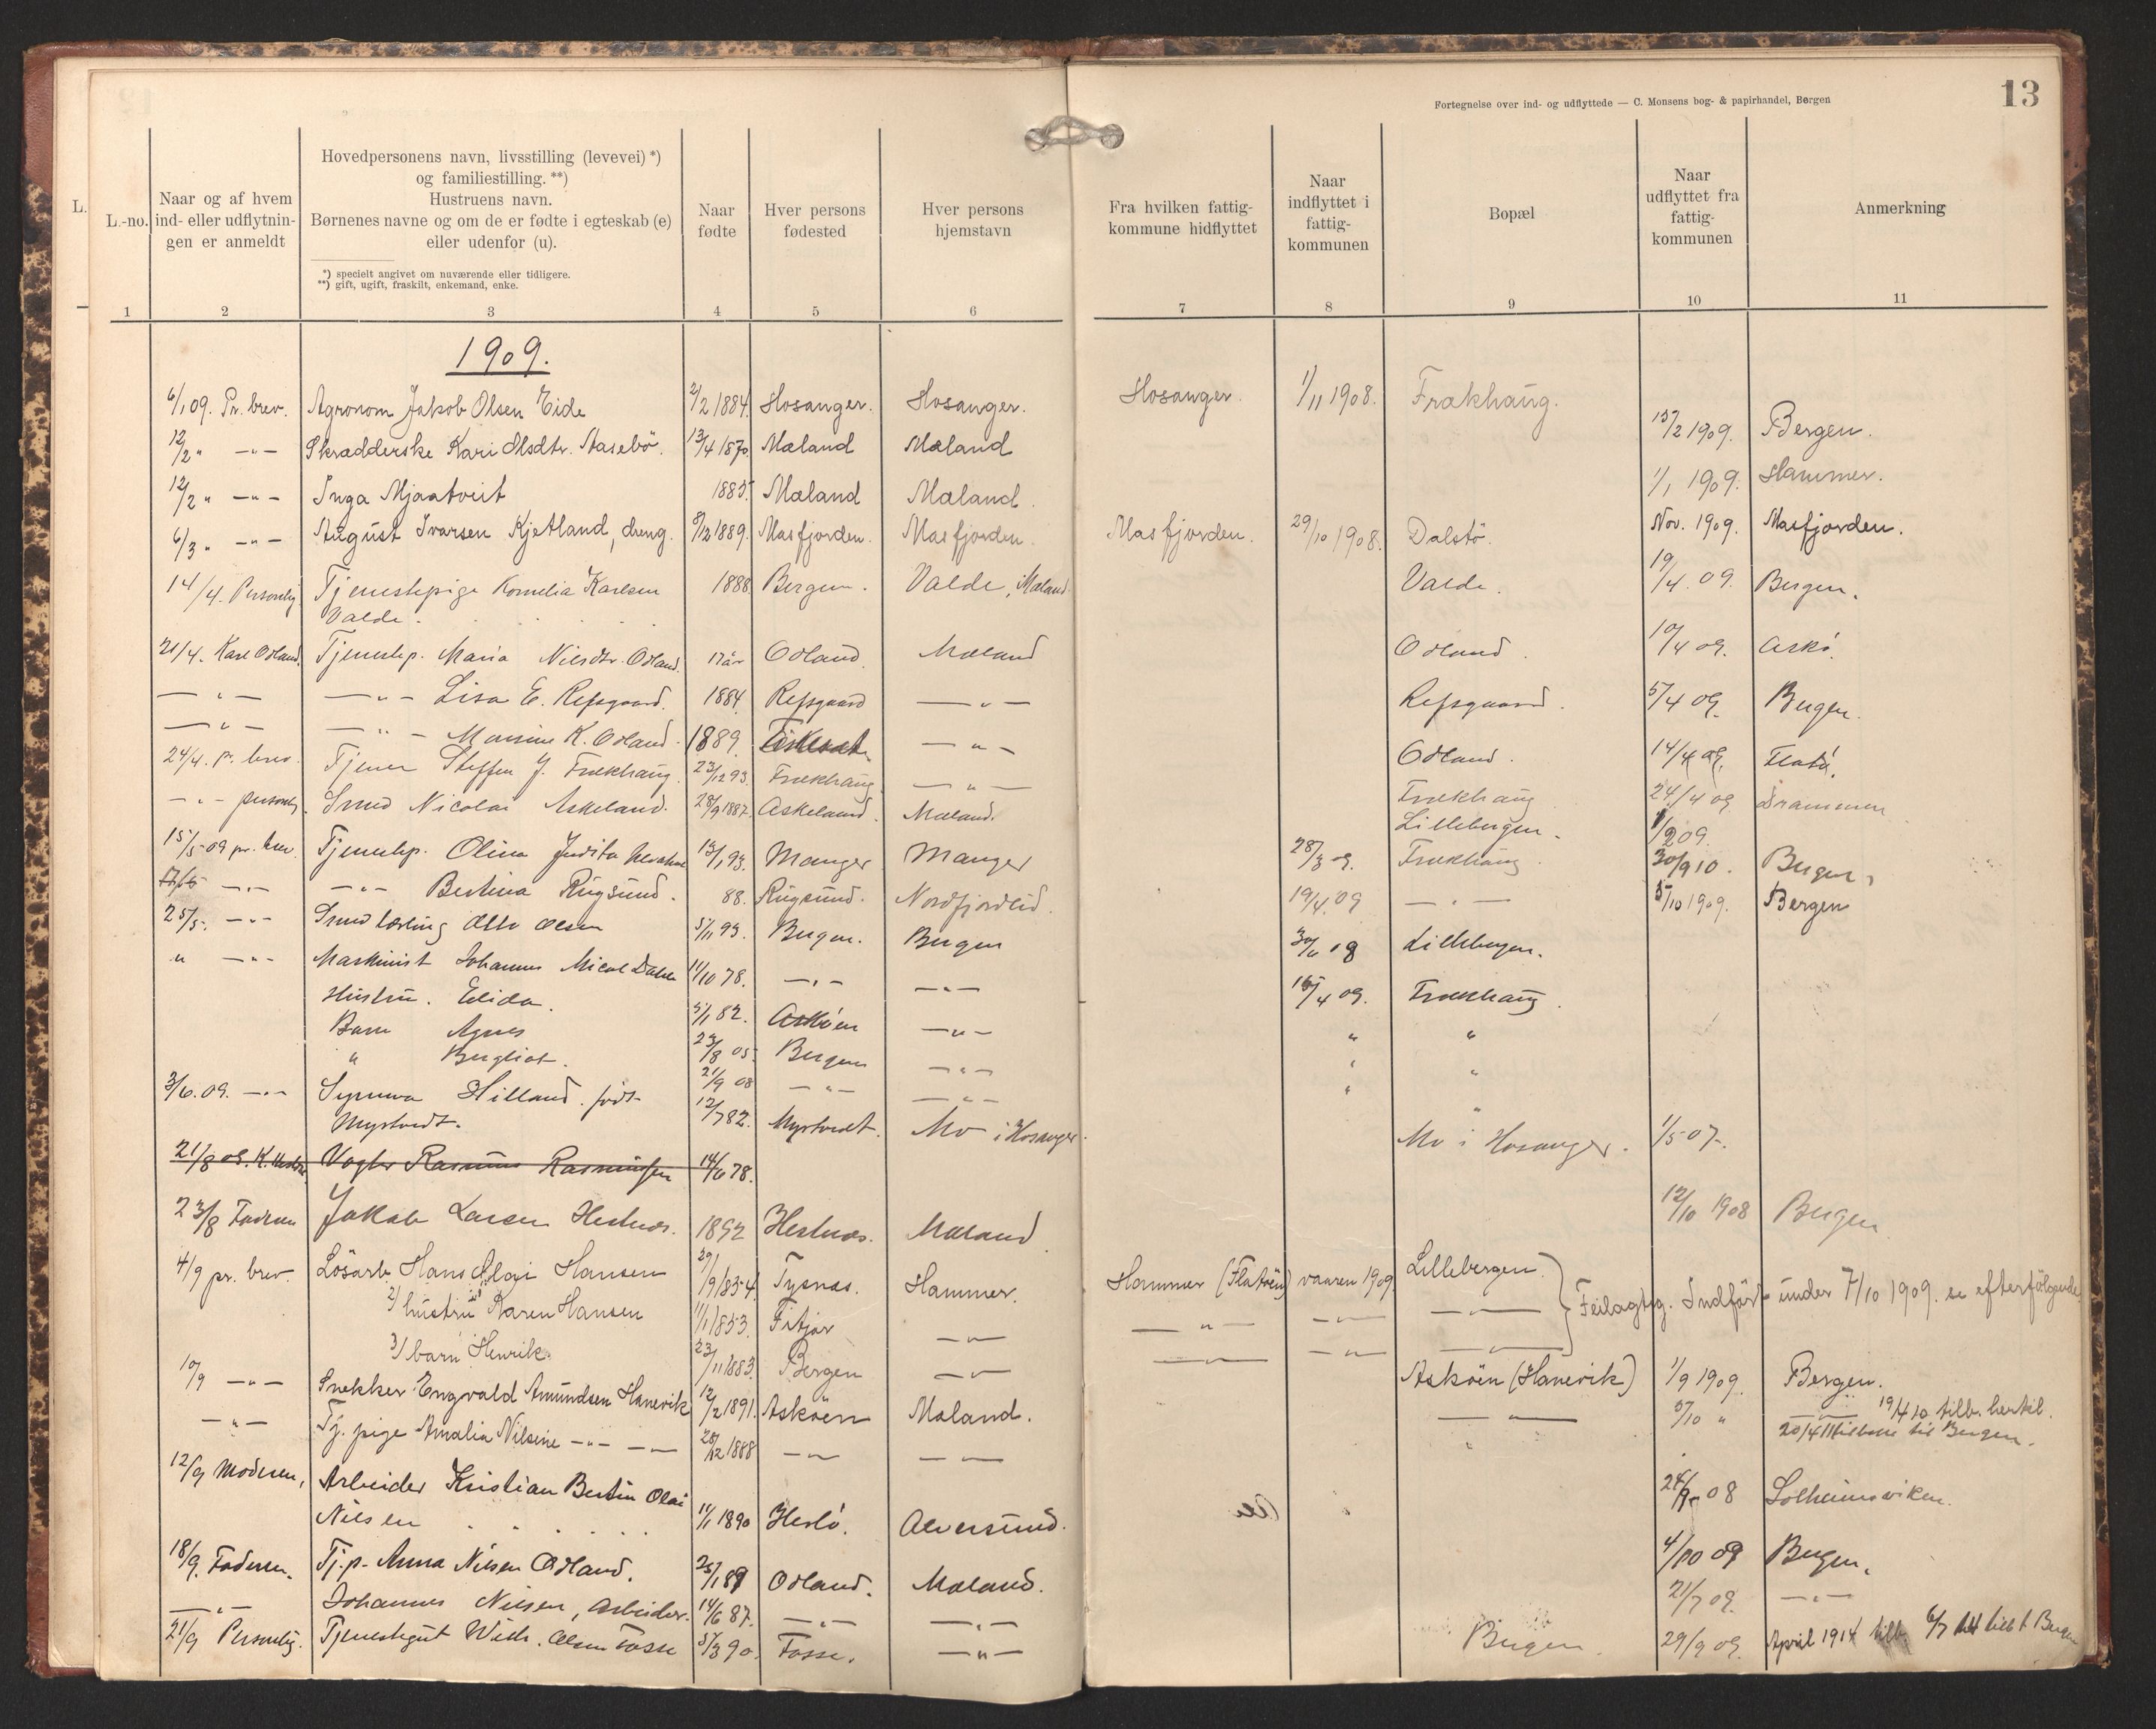 Fortegnelse over ind- og udflyttede — C. Monsens bog- & papirhandel, Bergen
13
L.
L.-no.
Naar og af hvem ind- eller udflytningen er anmeldt
Hovedpersonens navn, livsstilling (levevei) *)
og familiestilling. **)
Hustruens navn.
Børnenes navne og om de er fødte i egteskab (e)
eller udenfor (u).
*) specielt angivet om nuværende eller tidligere.
**) gift, ugift, fraskilt, enkemand, enke.
Naar fødte
Hver persons fødested
Hver persons hjemstavn
Fra hvilken fattigkommune hidflyttet
Naar indflyttet i fattigkommunen
Bopæl
Naar udflyttet fra fattigkommunen
Anmerkning
1 2 3 4 5 6 7 8 9 10 11
1909.
6/1 09. Pr. brev. Agronom Jakob Olsen Eide 2/2 1884. Hosanger. Hosanger. Hosanger. 1/11 1908. Frækhaug.
12/2 " —"— Skrædderske Kari Olsdtr. Aasebö. 13/4 1870. Mæland Mæland 15/2 1909. Bergen.
12/2 " —"— Inga Mjaatveit 1885. Mæland Mæland. 1/1 1909. Hammer.
6/3 " —"— August Ivarsen Kjetland, dreng. 8/2 1889. Masfjorden. Masfjorden. Masfjorden. 29/10 1908. Dalstö. Nov. 1909. Masfjorden.
14/4. Personlig Tjenestepige Kornelia Karlsen 1888. Bergen. Valde, i Mæland. Valde. 19/4. 09. Bergen.
Valde.
21/4. Karl Odland. Tjenestep. Maria Nilsdtr. Odland. 17 år Odland. Mæland Odland. 10/4 09. Askö.
—"— —"— Lisa E. Refsgaard. 1884. Refsgaard —"— Refsgaard. 5/4 09. Bergen.
—"— —"— Marsine K. Odland. 1889. —"— Odland. 14/4 09. Flatö.
24/4. pr. brev. Tjener Steffen J. Frækhaug. 23/12 93. Frækhaug. —"— Frækhaug 24/4 09 Drammen
—"— personlig. Smed Nicolai Askeland. 28/9 1887. Askeland. Mæland. Lillebergen. 1/2 09.
15/5 09 pr. brev. Tjenestep. Olina Judita 13/1 93. Manger Manger 28/3 09. Frækhaug. 30/9 10. Bergen.
—"— —"— Bertina Rugsund. 88. Rugsund. Nordfjordeid. 19/4. 09 —"— 5/10 1909. Bergen
25/5. —"— Smedlærling Otto Olsen 5/11 93. Bergen. Bergen Lillebergen.
" —"— Maskinist Johannes Mical Dahle 11/10 78. —"— —"— 15/4 09. Frækhaug.
Hustru. Elida. 5/1 82. Asköen —"— " "
Barn Agnes 23/8 05. Bergen —"— " "
" Bergliot. 21/9 08 —"— —"— " "
3/6. 09. —"— Synneva Hilland. födt 12/7 82. Myrtvedt. Mo i Hosanger. Mo i Hosanger. 1/5 07.
Myrtvedt.
21/8 09. K. Rasmus Rasmussen 14/6 78.
23/8 Faderen Jakob Larsen Hestnes. 1892 Hestnes. Mæland. 12/10 1908 Bergen
4/9 pr. brev. Lösarb. Hans Olai Hansen 29/9 1854. Tysnæs. Hammer. Hammer (Flatöen) vaaren 1909. Lillebergen. Feilagtig. Indført under 7/10 1909. se efterfölgende.
2) hustru Karen Hansen 11/1 1853. Fitjar —"— —"— —"— —"—
3) barn Henrik. 23/11 1883. Bergen —"— —"— —"— —"—
10/9 —"— Snekker Engvald Amundsen Hanevik 12/2 1891. Asköen Mæland. Asköen (Hanevik) 1/9 1909. Bergen.
—"— Tj. pige Amalia Nilsine —"— —"— 28/12 1888 —"— —"— —"— 5/10 " —"— 19/4 10 tilb. hertil.
20/4 11 tilbage til Bergen.
12/9 Moderen, Arbeider Kristian Bertin Olai
Nilsen 11/1 1890 Herlö. Alversund. 24/9 08 Solheimsviken.
18/9. Faderen. Tj.p. Anna Nilsen Odland. 25/1 89 Odland. Mæland. 4/10 09 Bergen.
—"— Johannes Nilsen, Arbeider. 14/6 87. —"— —"— 21/7 09. —"—
21/9 Personlig. Tjenestegut Wilh. Olsen Fosse 5/3 90. Fosse. —"— Bergen. 29/9 09. April 1914 tilb. 6/7 14 tilb t Bergen